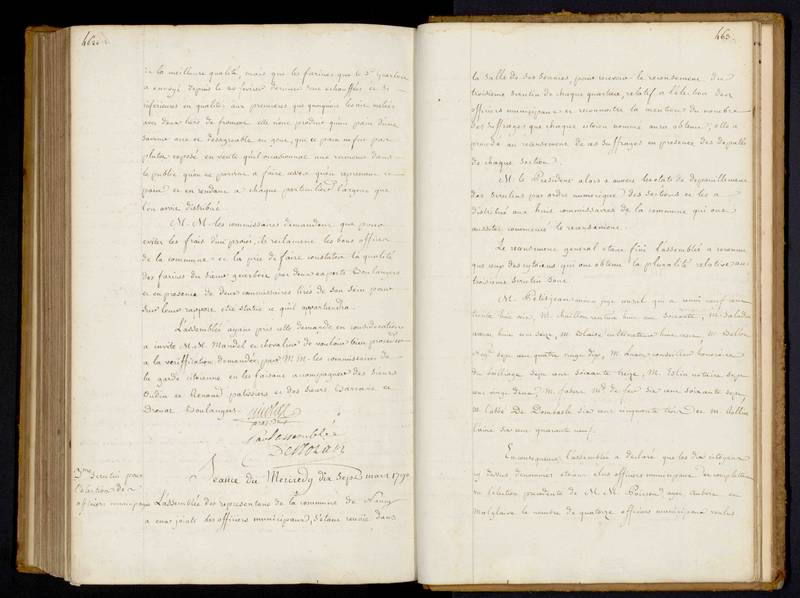 462
de la meilleure qualité, mais que les farines que le Sr
a envoyé depuis le 20 fevrier dernier sont echauffées et si
inferieures en qualité aux premieres que quoiqu'on les aie melées
avec deux tiers de froment elle n'ont produit qu'un pain d'une
saveur acre et desagreable au gout, que ce pain ne fut pas
plutot exposé en vente qu'il occasionnat une rumeur dans
le public qu'on ne parvint a faire cesser qu'en reprenant ce
pain et en rendant a chaque particulier l'argent que
l'on avoit distribué.
M. M. les commissaires demandent que pour
eviter les frais d'un procès, ils reclament les bons offices
de la commune et la prie de faire constater la qualité
des farines du sieur par deux experts Boulangers
et en presence de deux commissaires tirés de son sein pour
sur leur rapport etre statué ce qu'il appartiendra.
L'assemblée ayant pris cette demande en consideration
a invité M. M. Mandel et chevalier de vouloir bien proceder
a la veriffication demandée par M M. les commissaires de
la garde citoienne en les faisant accompagner des sieurs
Oudin et Renaud patissiers et des sieurs et
Drouot Boulangers.
president
Par l'assemblée
Seance du Mercredy dix sept mars 1790
3me Scrutin pour
l'élection des
officiers municipaux
L'assemblée des representans de la commune de Nancy
a eux joints les officiers municipaux, s'etant reunie dans
463
la salle de ses séances, pour recevoir le recensement du
troisieme scrutin de chaque quartier, relatif a l'election des
officiers municipaux et reconnoitre la mention du nombre
des suffrages que chaque citoien nommé aura obtenu; elle a
procedé au recensement de ces suffrages en presence des deputés
de chaque section.
M. le President alors a ouvert les etats de depouillement
des scrutins par ordre numerique des sections et les a
distribué aux huit commissaires de la commune qui ont
aussitot commencé le recensement.
Le recensement général etant fini l'assemblée a reconnu
que ceux des citoiens qui ont obtenu la pluralité relative au
troisieme scrutin sont
M. Petitjean qui a reuni neuf cent
trente huit voix, M. Chaillon huit cent soixante, M. Saladin
huit cent seize, M. Blaise cultivateur huit cent, M.
sept cent quatre vingt dix, M. conseiller honoraire
du bailliage sept cent soixante treize, M. Eslin notaire sept
cent vingt deux, M. fabert Md de fer six cent soixante sept,
M. l'abbé De Dombasle six cent cinquante trois et M. Rollin
six cent quarante neuf.
En consequence l'assemblée a declaré que les dix citoyens
cy dessus denommés etoient elus officiers municipaux et completoient
en l'election precedente de M. M. Poirson, et
Malglaive le nombre de quatorze officiers municipaux voulus